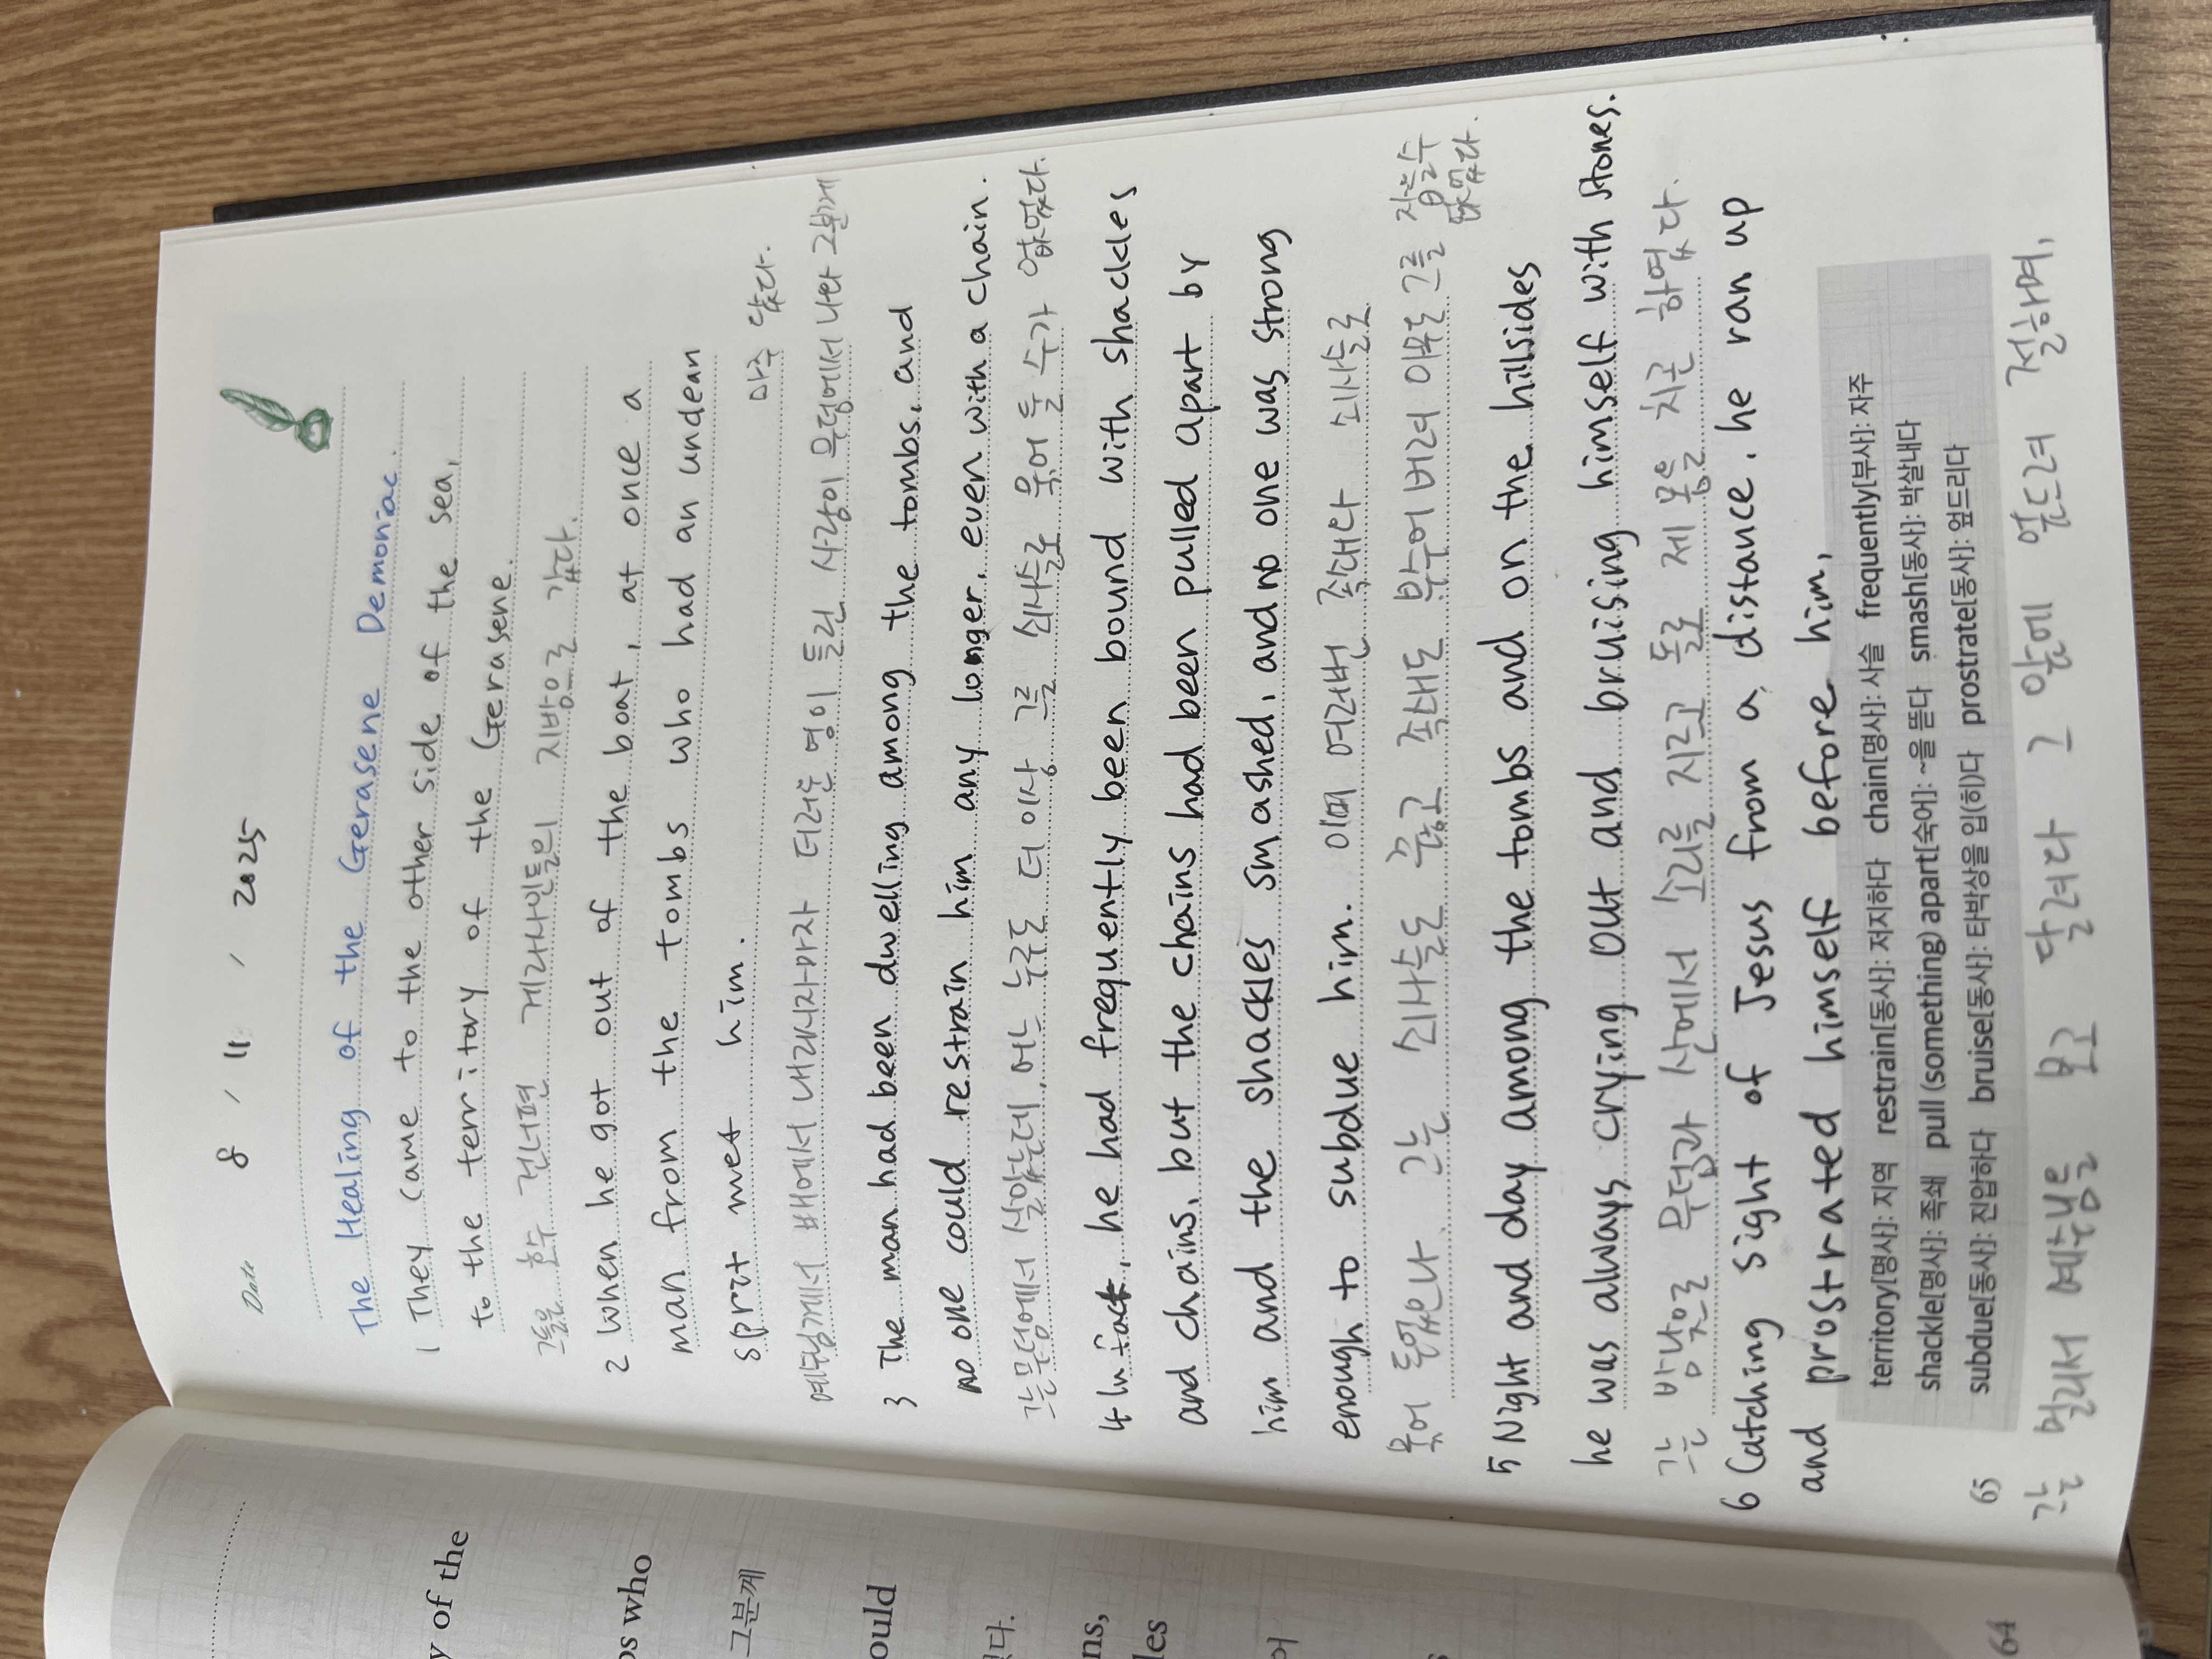 Date 8 / 11 / 2025
The Healing of the Gerasene Demoniac.
1 They came to the other side of the sea,
to the territory of the Gerasene.
그들은 호수 건너편 게라사인들의 지방으로 갔다.
2 When he got out of the boat, at once a
man from the tombs who had an unclean
sprit met him.
예수님께서 배에서 내리시자마자 더러운 영이 들린 사람이 무덤에서 나와 그분께
마주 왔다.
3 The man had been dwelling among the tombs, and
no one could restrain him any longer, even with a chain.
그는 무덤에서 살았는데, 어느 누구도 더 이상 그를 쇠사슬로 묶어 둘 수가 없었다.
4 In fact, he had frequently been bound with shackles
and chains, but the chains had been pulled apart by
him and the shackles smashed, and no one was strong
enough to subdue him. 이미 여러번 족쇄와 쇠사슬로
묶어 두었으나, 그는 쇠사슬도 끊고 족쇄도 부수어 버려 아무도 그를 잡을수
없었다.
5 Night and day among the tombs and on the hillsides
he was always crying out and bruising himself with stones.
그는 밤낮으로 무덤과 산에서 소리를 지르고 돌로 제 몸을 치곤 하였다.
6 Catching sight of Jesus from a distance, he ran up
and prostrated himself before him,
territory[명사]: 지역 restrain[동사]: 저지하다 chain[명사]: 사슬 frequently[부사]: 자주
shackle[명사]: 족쇄 pull (something) apart[숙어]: ~을 뜯다 smash[동사]: 박살내다
subdue[동사]: 진압하다 bruise[동사]: 타박상을 입(히)다 prostrate[동사]: 엎드리다
65
그는 멀리서 예수님을 보고 달려와 그 앞에 엎드려 절하며,
y of the
os who
그분께
ould
었다.
ns,
les
어
64